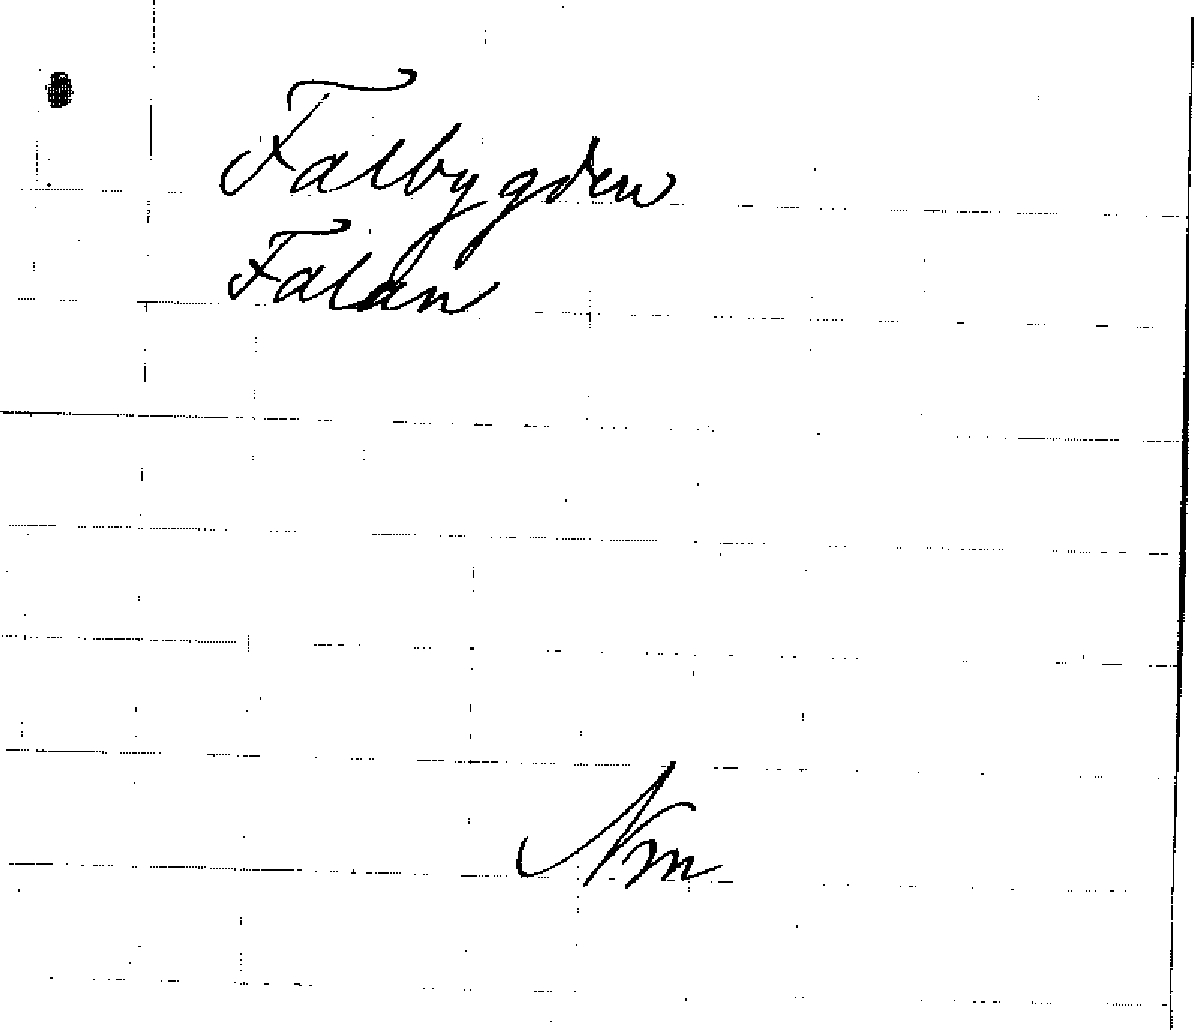 Falbygden
Falan
Nm.